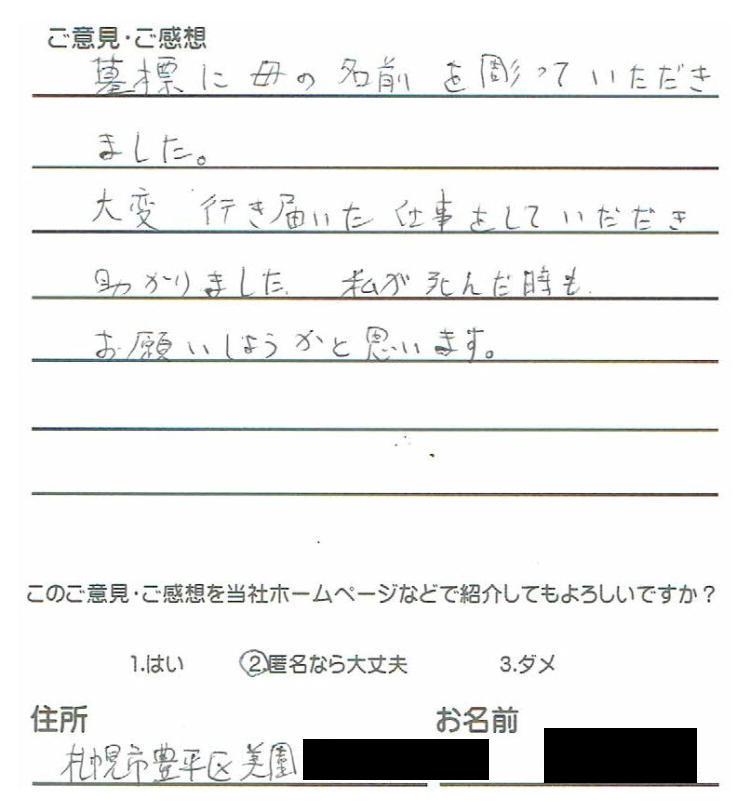 ご意見・ご感想
墓標に母の名前を彫っていただき
ました。
大変 行き届いた仕事をしていただき
助かりました. 私が死んだ時も
お願いしようかと思います。
このご意見・ご感想を当社ホームページなどで紹介してもよろしいですか？
1.はい 2.匿名なら大丈夫 3.ダメ
住所 お名前
札幌市豊平区美園